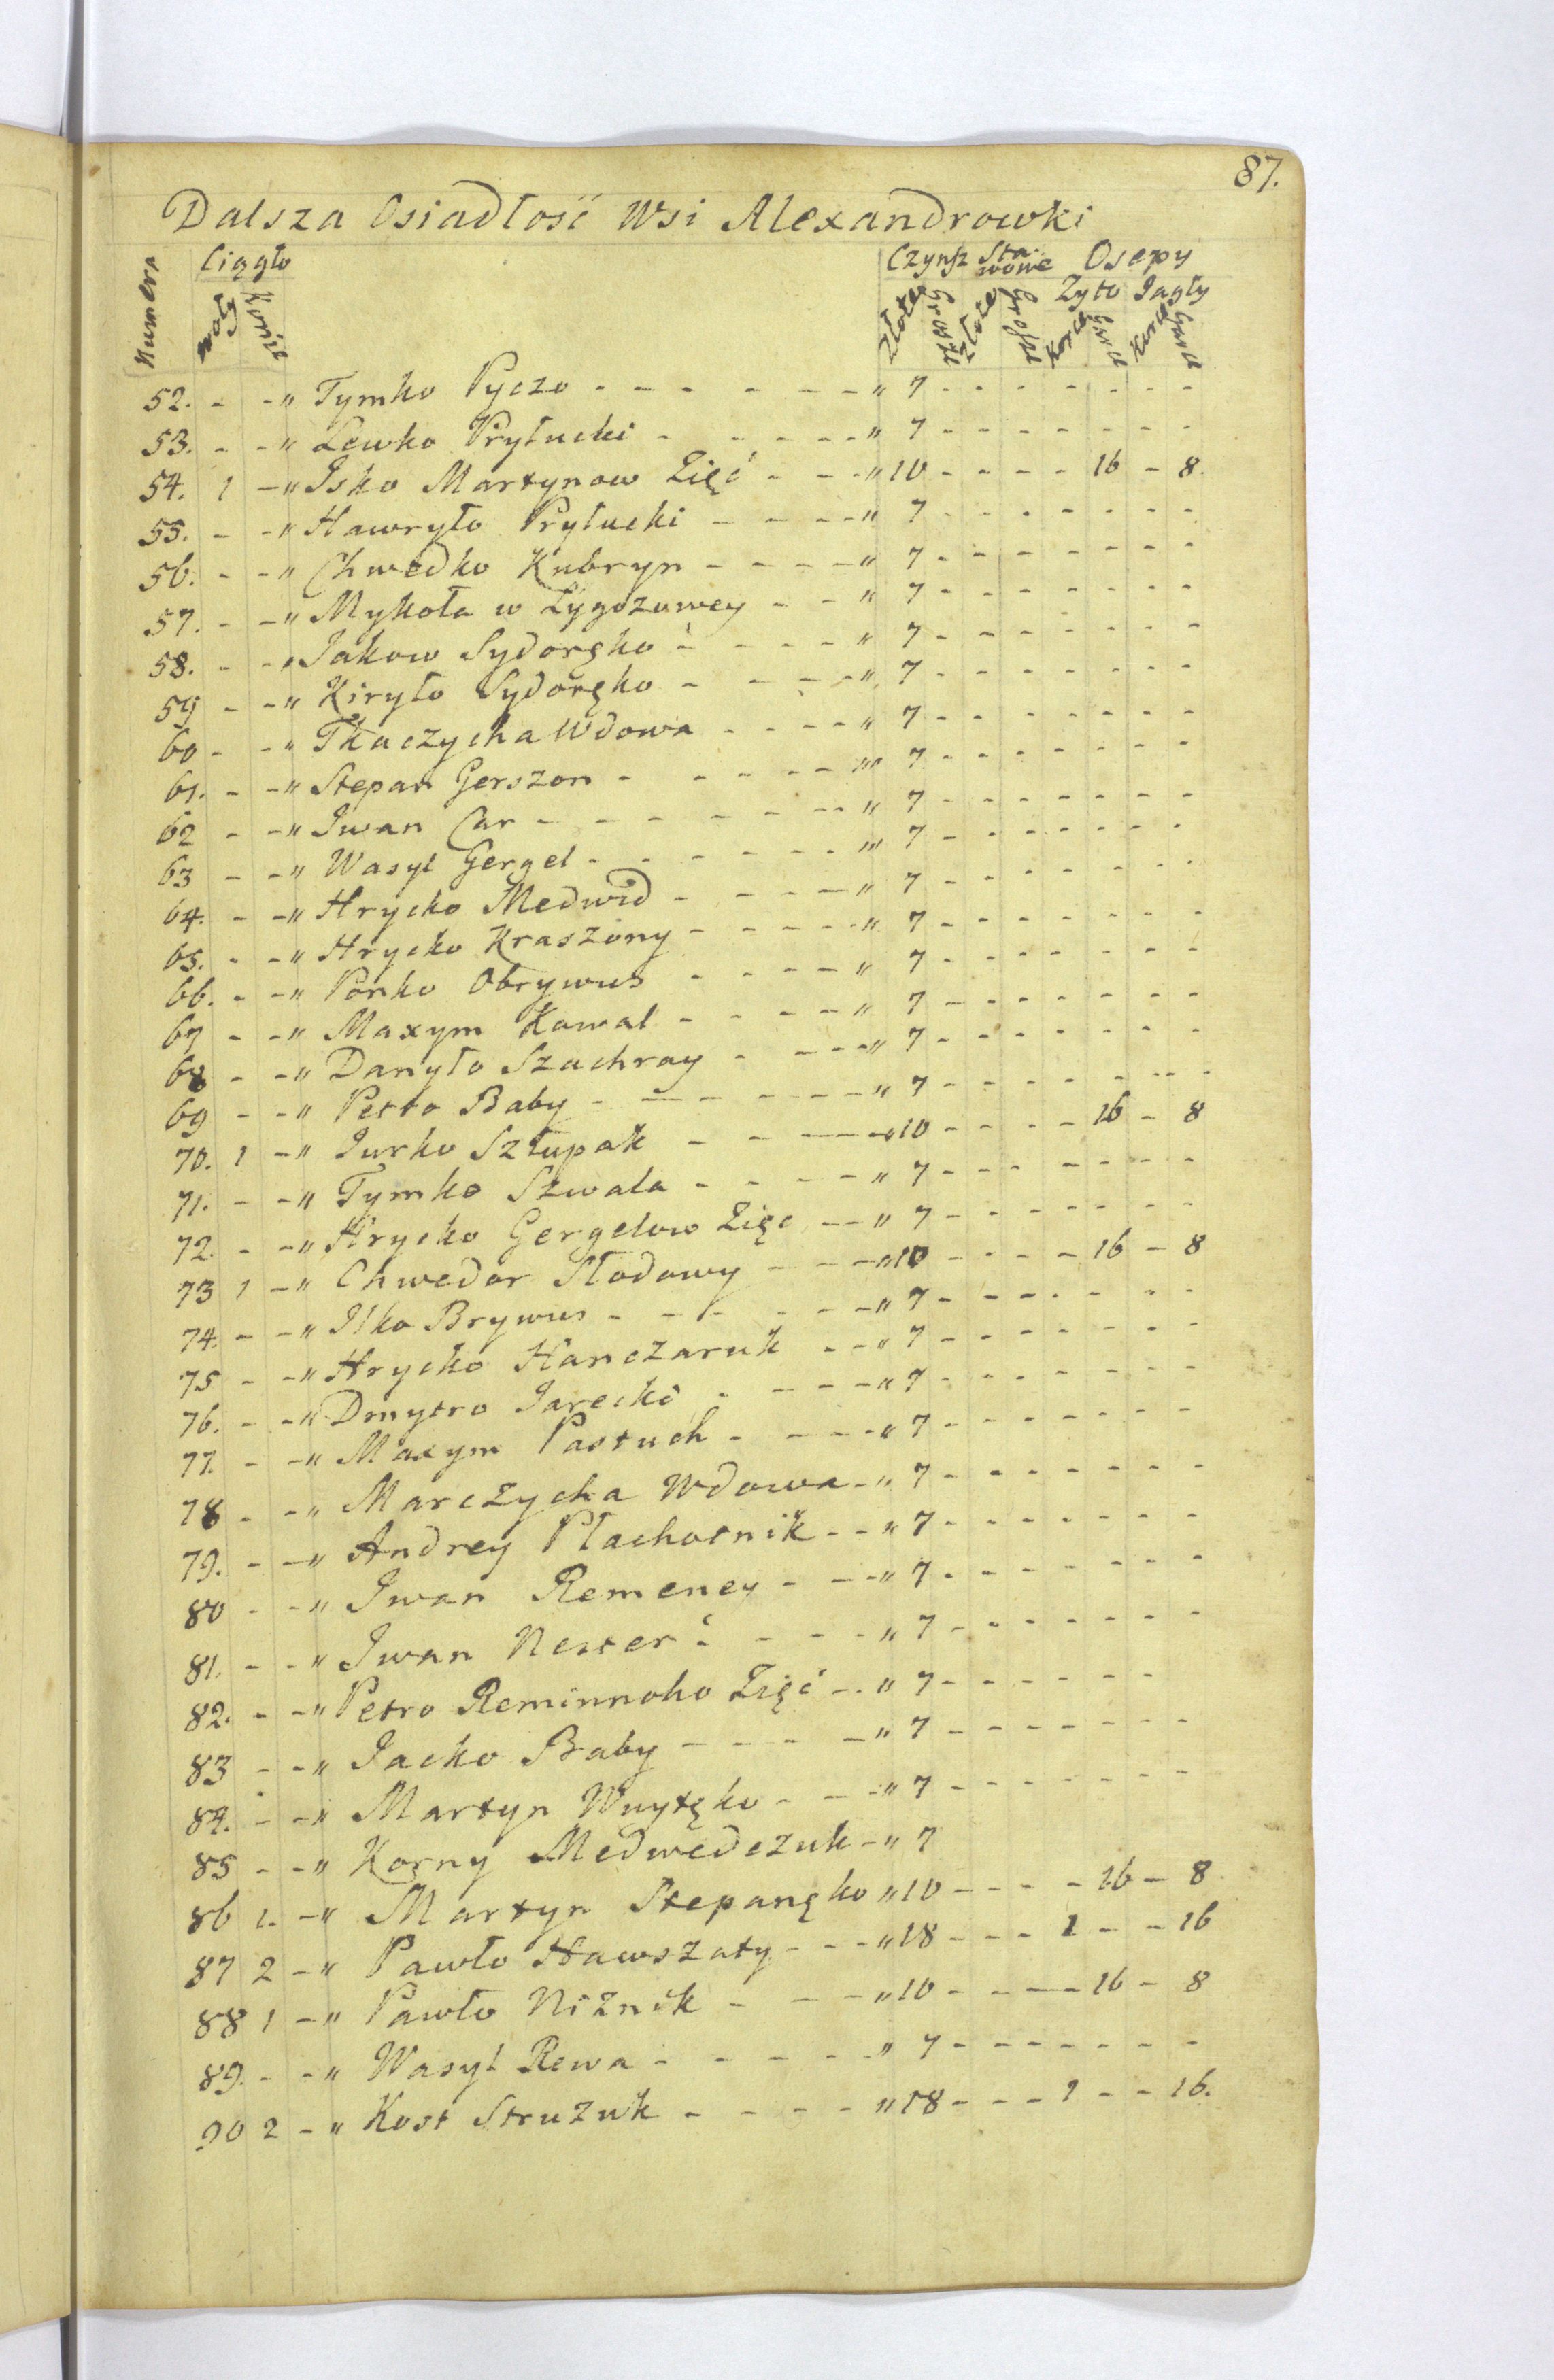 87.
Dalsza Osiadłość Wsi Alexandrowki
Numera Ciągło Czynsz Stawowe Osepy
Złote Grosze Złote Grosze Zyto Jagły
Korce Garce Korce Garce
52. - - " Tymko Pyczo - - - - - - " 7 - - - - - - - -
53. - - " Lewko Prytucki - - - - - " 7 - - - - - - - -
54. 1 - " Isko Martynow Zięć - - - " 10 - - - - 16 - 8.
55. - - " Hawryło Prytucki - - - - " 7 - - - - - - - -
56. - - " Chwedko Kubryn - - - - " 7 - - - - - - - -
57. - - " Mykoła w Łygozowey - - " 7 - - - - - - - -
58. - - " Jakow Sydoręko - - - - " 7 - - - - - - - -
59 - - " Kiryło Sydoręko - - - - " 7 - - - - - - - -
60 - - " Tkaczycha Wdowa - - - - " 7 - - - - - - - -
61. - - " Stepan Gerszon - - - - - " 7 - - - - - - - -
62 - - " Iwan Car - - - - - - - " 7 - - - - - - - -
63 - - " Wasyl Gergel - - - - - - " 7 - - - - - - - -
64. - - " Hrycko Medwid - - - - " 7 - - - - - - - -
65. - - " Hrycko Kraszony - - - - - " 7 - - - - - - - -
66. - - " Ponko Obrywus - - - - " 7 - - - - - - - -
67 - - " Maxym Kowal - - - - " 7 - - - - - - - -
68 - - " Danyło Szachray - - - - " 7 - - - - - - - -
69 - - " Petro Baby - - - - - - " 7 - - - - - - - -
70. 1 - " Jurko Szłupak - - - - " 10 - - - - 16 - 8
71. - - " Tymko Szwala - - - - " 7 - - - - - - - -
72. - - " Hrycko Gergelow Zięc - - " 7 - - - - - - - -
73 1 - " Chwedor Słodowy - - - " 10 - - - - 16 - 8
74. - - " Ilko Brywus - - - - - - " 7 - - - - - - -
75 - - " Hrycko Hanczaruk - - " 7 - - - - - - - -
76. - - " Dmytro Jarecki - - - - " 7 - - - - - - - -
77. - - " Maxym Pastuch - - - - " 7 - - - - - - - -
78 - - " Marczycha Wdowa - " 7 - - - - - - - -
79. - - " Andrey Płachotnik - - " 7 - - - - - - - -
80 - - " Iwan Remeney - - - " 7 - - - - - - - -
81. - - " Iwan Nester - - - - " 7 - - - - - - - -
82. - - " Petro Reminnoho Zięć - - " 7 - - - - - -
83 - - " Jacko Baby - - - - " 7 - - - - - - - -
84. - - " Martyn Wuytęko - - - " 7 - - - - - - - -
85 - - " Korny Medwedczuk - " 7
86 1. - " Martyn Stepanęko " 10 - - - - 16 - 8
87 2 - " Pawło Hawszaty - - - " 18 - - - 1 - - 16
88 1 - " Pawło Niznik - - - " 10 - - - - 16 - 8
89. - - " Wasyl Rewa - - - - - " 7 - - - - - - - -
90 2 - " Kost Struzuk - - - - " 18 - - - 1 - - 16.